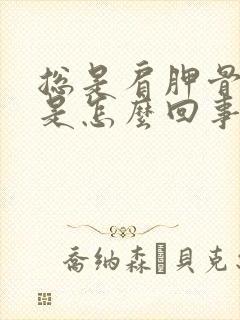 總是肩胛骨
是怎麼回事
喬納森·貝克